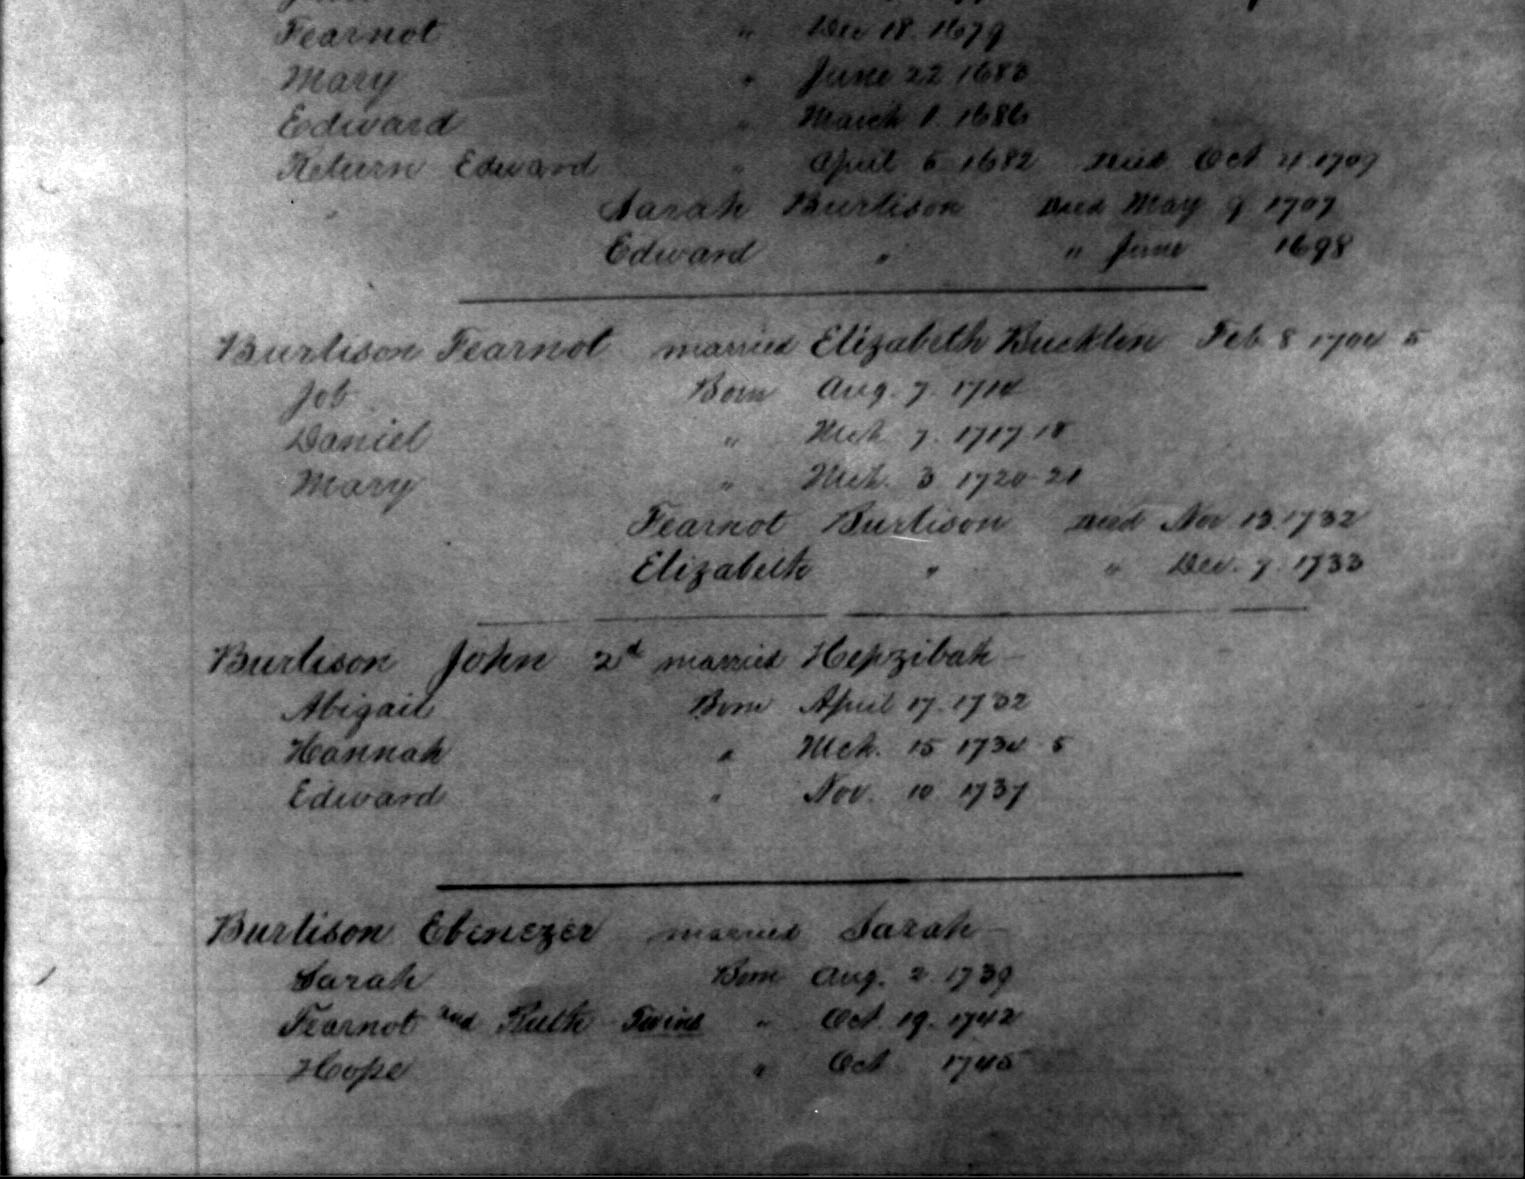 Fearnot " Dec 18. 1679
Mary " June 22 1683
Edward " March 1. 1686
Return Edward " April 5 1682 Died Oct 21. 1709
Sarah Burlison Died May 9 1707
Edward " " June 1698
Burlison Fearnot married Elizabeth Bucklen Feb. 8 1704 5
Job Born Aug. 7. 1714
Daniel " Mch 7. 1717-18
Mary " Mch. 3 1720-21
Fearnot Burlison Died Nov 13. 1732
Elizabeth " " Dec. 7. 1733
Burlison John 2d married Hepzibah -
Abigail Born April 17. 1732
Hannah " Mch. 15 1734-5
Edward " Nov. 10 1737
Burlison Ebenezer married Sarah -
Sarah Born Aug. 2. 1739
Fearnot and Ruth Twins " Oct 19. 1742
Hope " Oct 1745